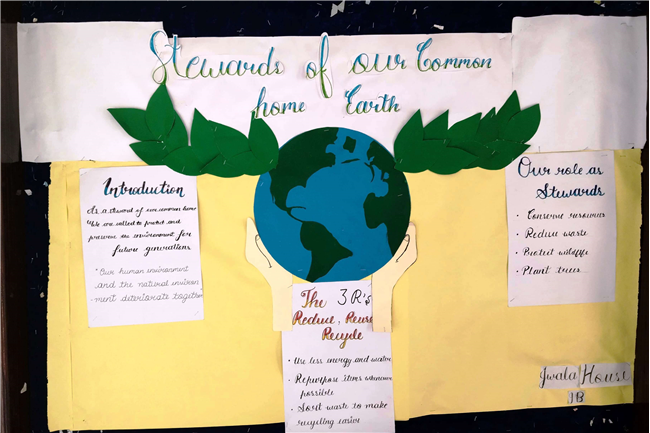 Stewards of our Common
home Earth
Introduction
As a steward of our common home
We are called to protect and
preserve the environment for
future generations
"Our human environment
and the natural environ-
ment deteriorate together
The 3R's
Reduce, Reuse
Recycle
• Use less energy and water
• Repurpose items whenever
possible
• Sort waste to make
recycling easier
Our role as
Stewards
• Conserve resources
• Reduce waste
• Protect wildlife
• Plant trees
Jwala House
IB